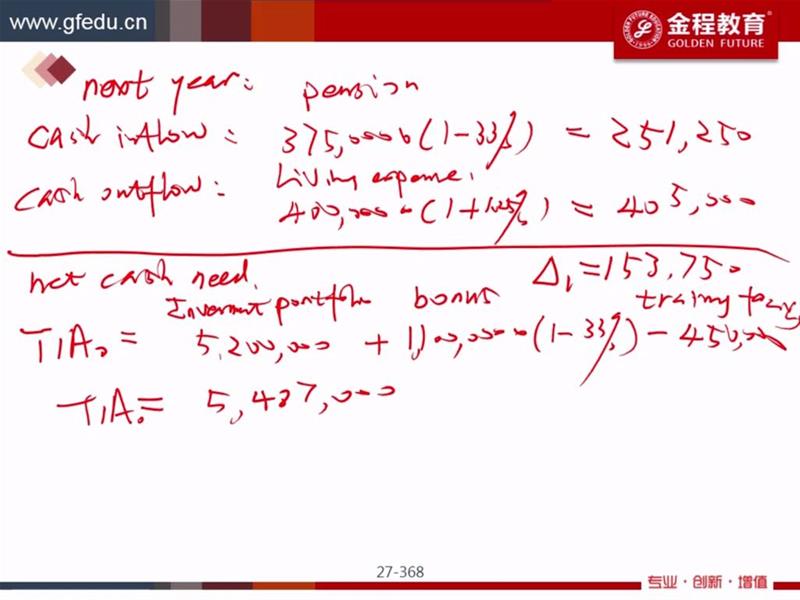 www.gfedu.cn
金程教育
GOLDEN FUTURE
next year: pension
cash inflow = 375,000 (1-33%) = 251,250
Living expense.
cash outflow: 400,000 (1+1.25%) = 405,000
net cash need. Δ₁=153,750
Investment portfolio bonus
TIA₀ = 5,200,000 + 1,100,000 (1-33%) - 450,000
TIA₀= 5,487,000
27-368
专业·创新·增值